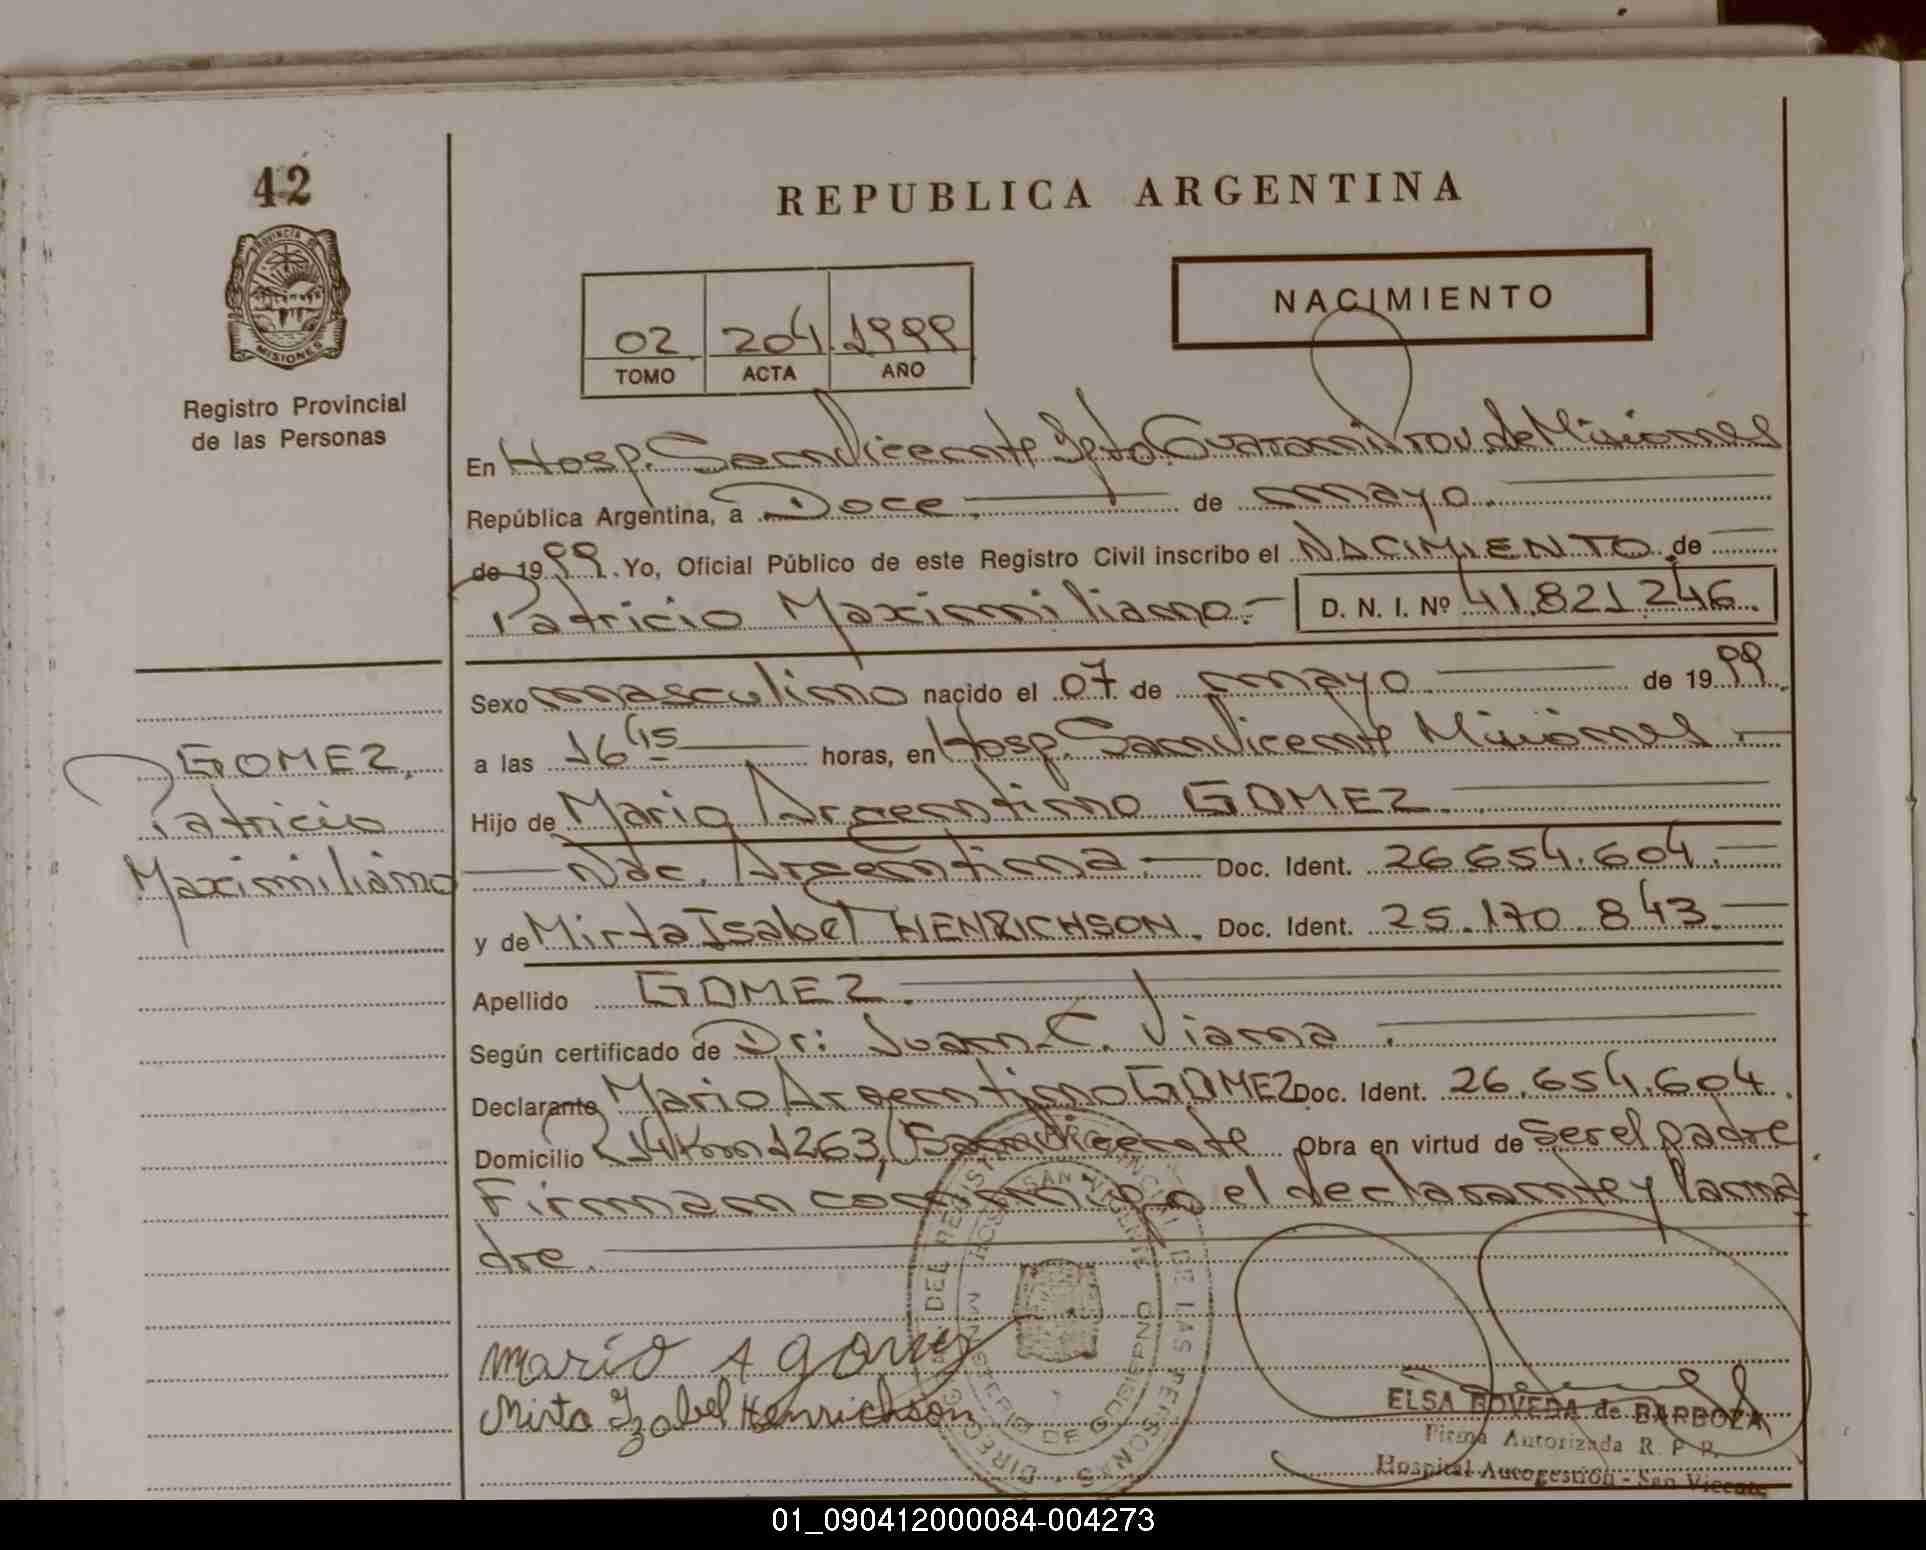 42
PROVINCIA DE
MISIONES
Registro Provincial
de las Personas
REPUBLICA ARGENTINA
02 204 1999
TOMO ACTA AÑO
NACIMIENTO
En Hosp. San Vicente Dpto. Guarani Prov. de Misiones
República Argentina, a Doce. de mayo.
de 1999. Yo, Oficial Público de este Registro Civil inscribo el NACIMIENTO de
Patricio Maximiliano.- D. N. I. Nº 41.821.246.
GOMEZ,
Patricio
Maximiliano
Sexo masculino nacido el 07 de mayo de 1999.
a las 16 45 horas, en Hosp. San Vicente Misiones
Hijo de Mario Argentino GOMEZ.
Nac. Argentina. Doc. Ident. 26.654.604.
y de Mirta Isabel HENRICHSON. Doc. Ident. 25.170.843.
Apellido GOMEZ.
Según certificado de Dr: Juan C. Viana.
Declarante Mario Argentino GOMEZ Doc. Ident. 26.654.604.
Domicilio R14 Km 1263, San Vicente Obra en virtud de ser el padre
Firman conmigo el declarante y la ma
dre.
Mario A Gomez
Mirta Izabel Henrichson
ELSA BOVEDA de BARBOZA
Firma Autorizada R. P. P.
Hospital Autogestión - San Vicente
01_090412000084-004273